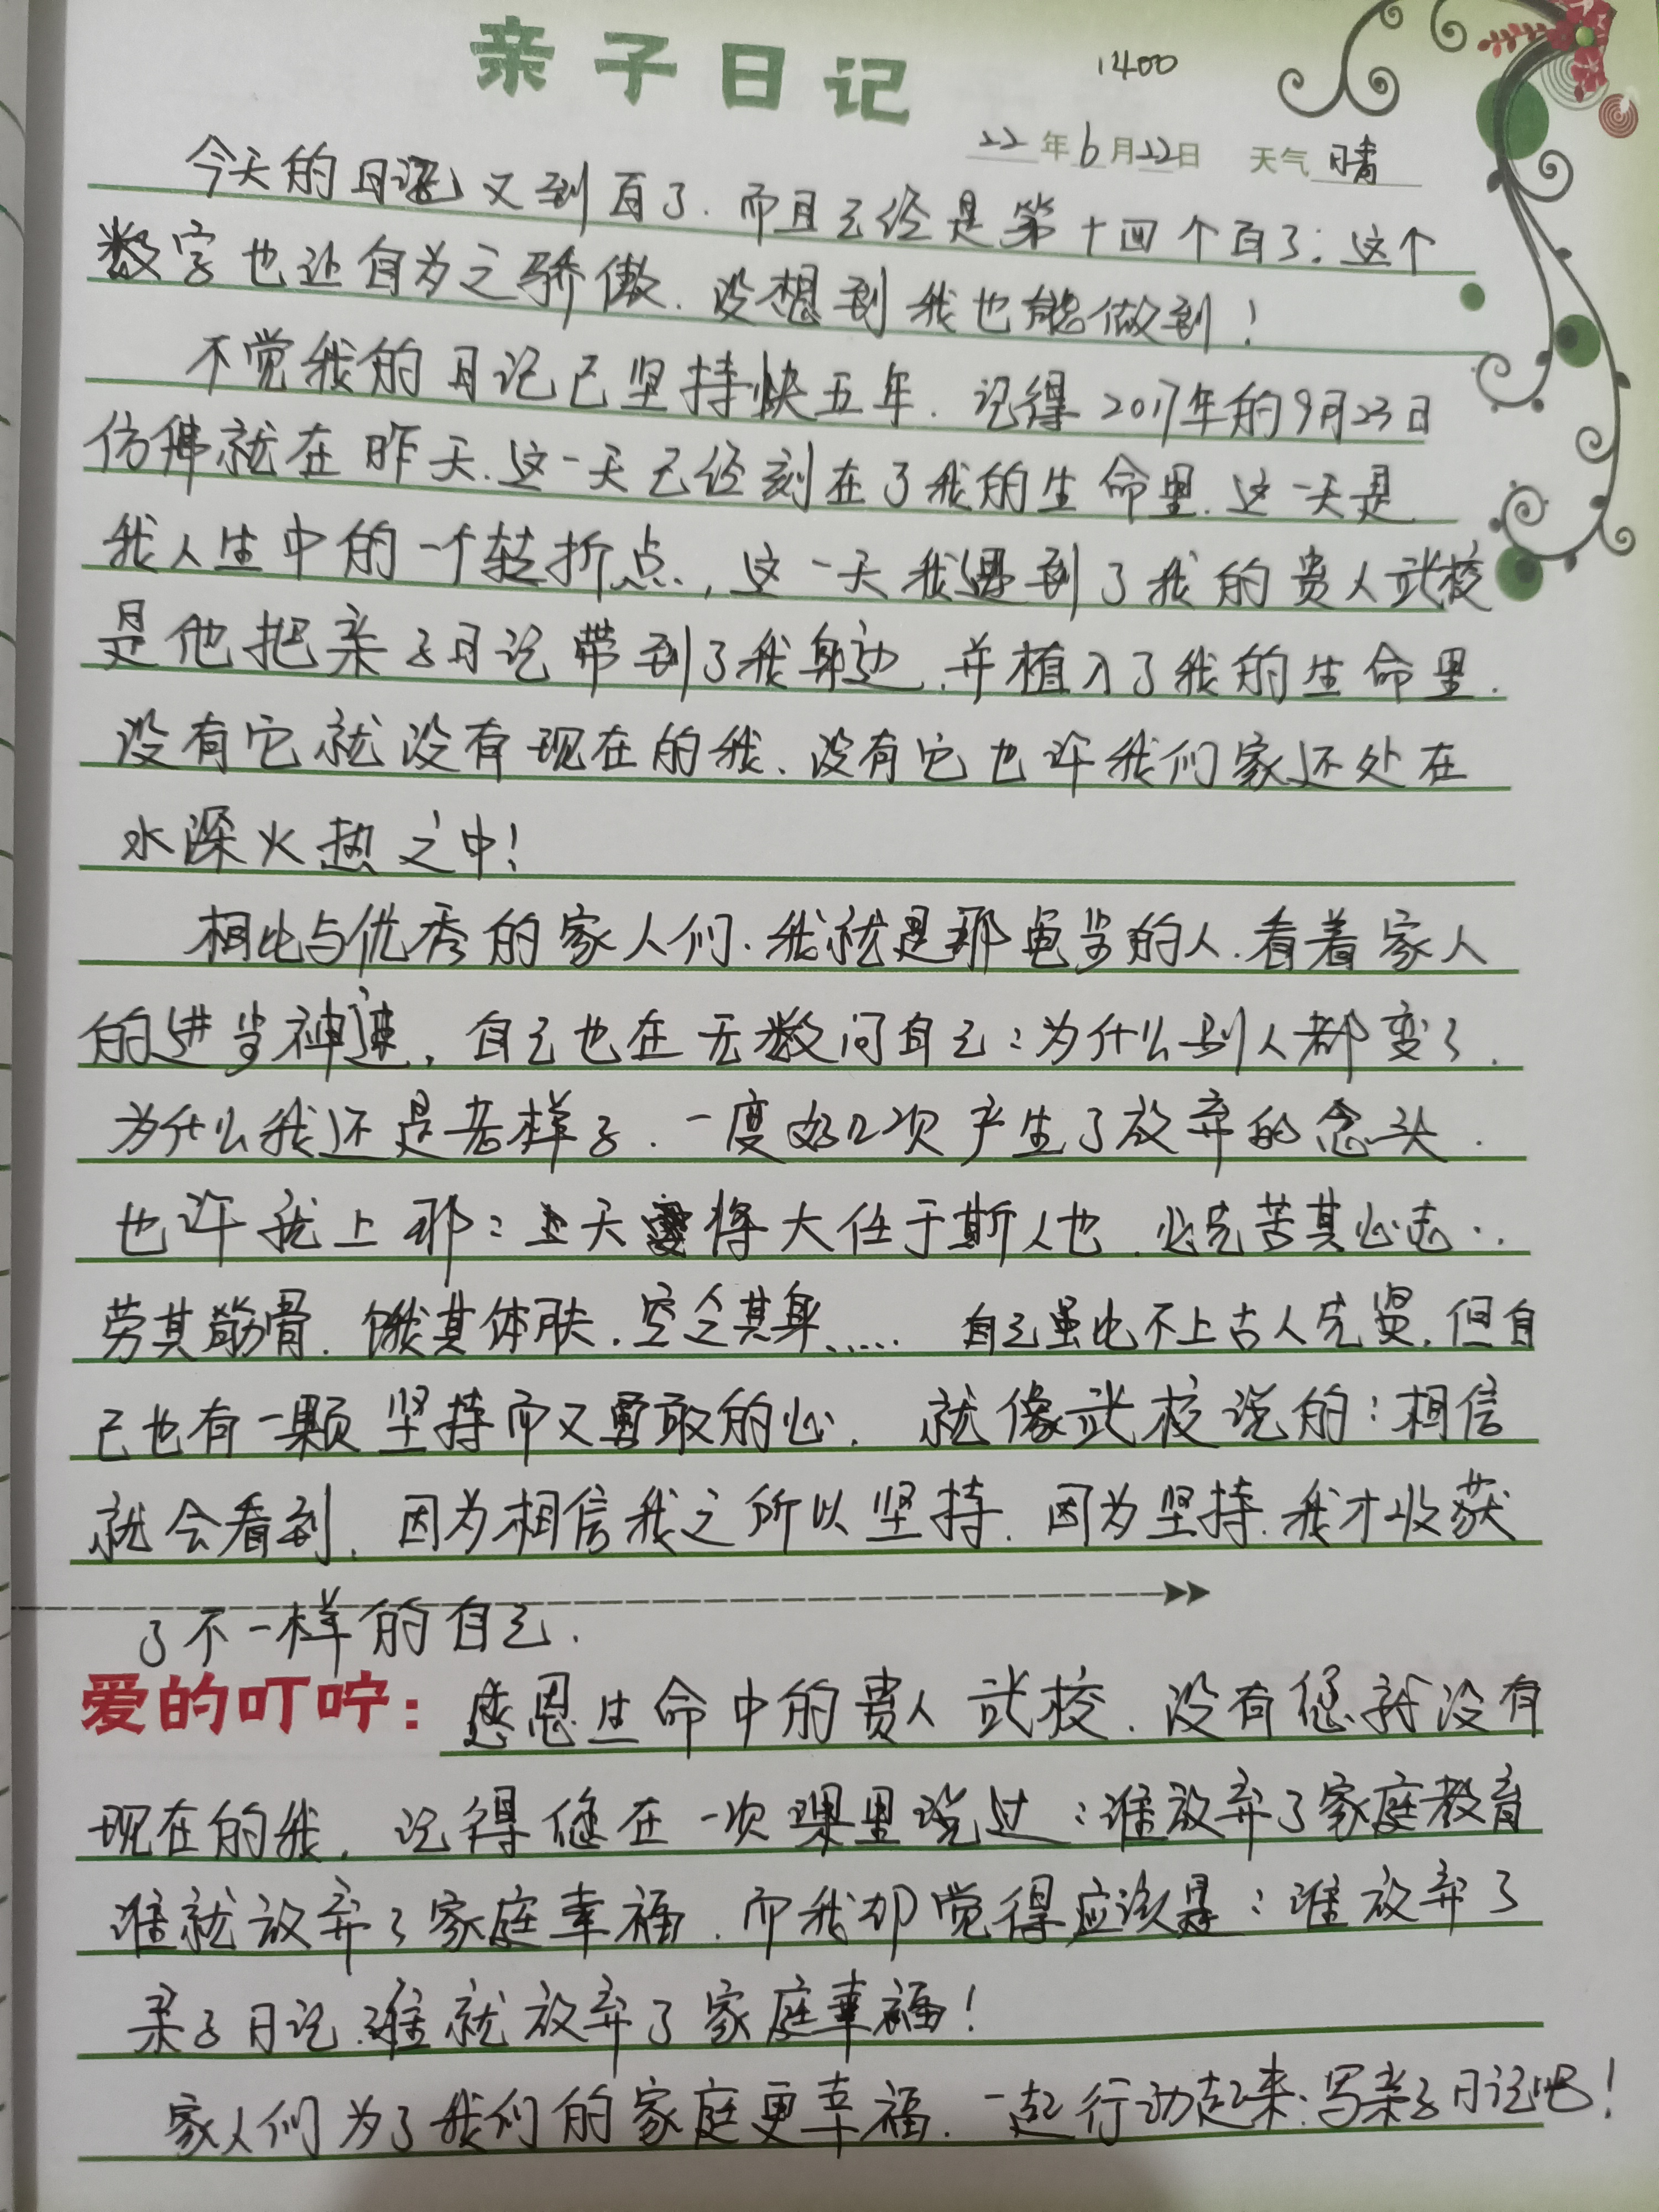 亲子日记
1400
22年6月22日 天气 晴
今天的日记又到百了.而且已经是第十四个百了:这个
数字也让自为之骄傲.没想到我也能做到!
不觉我的日记已坚持快五年.记得2017年的9月23日
仿佛就在昨天.这一天已经刻在了我的生命里.这一天是
我人生中的一个转折点,这一天我遇到了我的贵人武校
是他把亲子日记带到了我身边.并植入了我的生命里.
没有它就没有现在的我.没有它也许我们家还处在
水深火热之中!
相比与优秀的家人们.我就是那龟步的人.看着家人
的进步神速,自己也在无数问自己:为什么别人都变了.
为什么我还是老样子.一度好几次产生了放弃的念头.
也许就上那:上天将大任于斯人也.必先苦其心志..
劳其筋骨.饿其体肤.空乏其身..... 自己虽比不上古人先贤.但自
己也有一颗坚持而又勇敢的心. 就像武校说的:相信
就会看到.因为相信我之所以坚持.因为坚持.我才收获
了不一样的自己.
爱的叮咛:感恩生命中的贵人武校.没有您就没有
现在的我.记得您在一次课里说过:谁放弃了家庭教育
谁就放弃了家庭幸福.而我却觉得应该是:谁放弃了
亲子日记.谁就放弃了家庭幸福!
家人们为了我们的家庭更幸福.一起行动起来:写亲子日记吧!